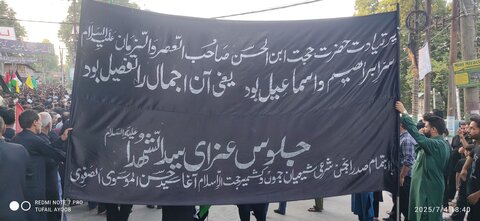 پر قیادت حضرت حجت ابن الحسن صاحب العصر والزمان علیہ السلام
سرِّ ابراهیم و اسماعیل بود یعنی آن اجمال را تفصیل بود
جلوس عزای سید الشہدا علیہ السلام
اہتمام صدر انجمن شرعی شیعیان جموں و کشمیر حجت الاسلام آغا سید حسن الموسوی الصفوی
REDMI NOTE 7 PRO
TUFAIL AYOOB
2025/7/4 18:40